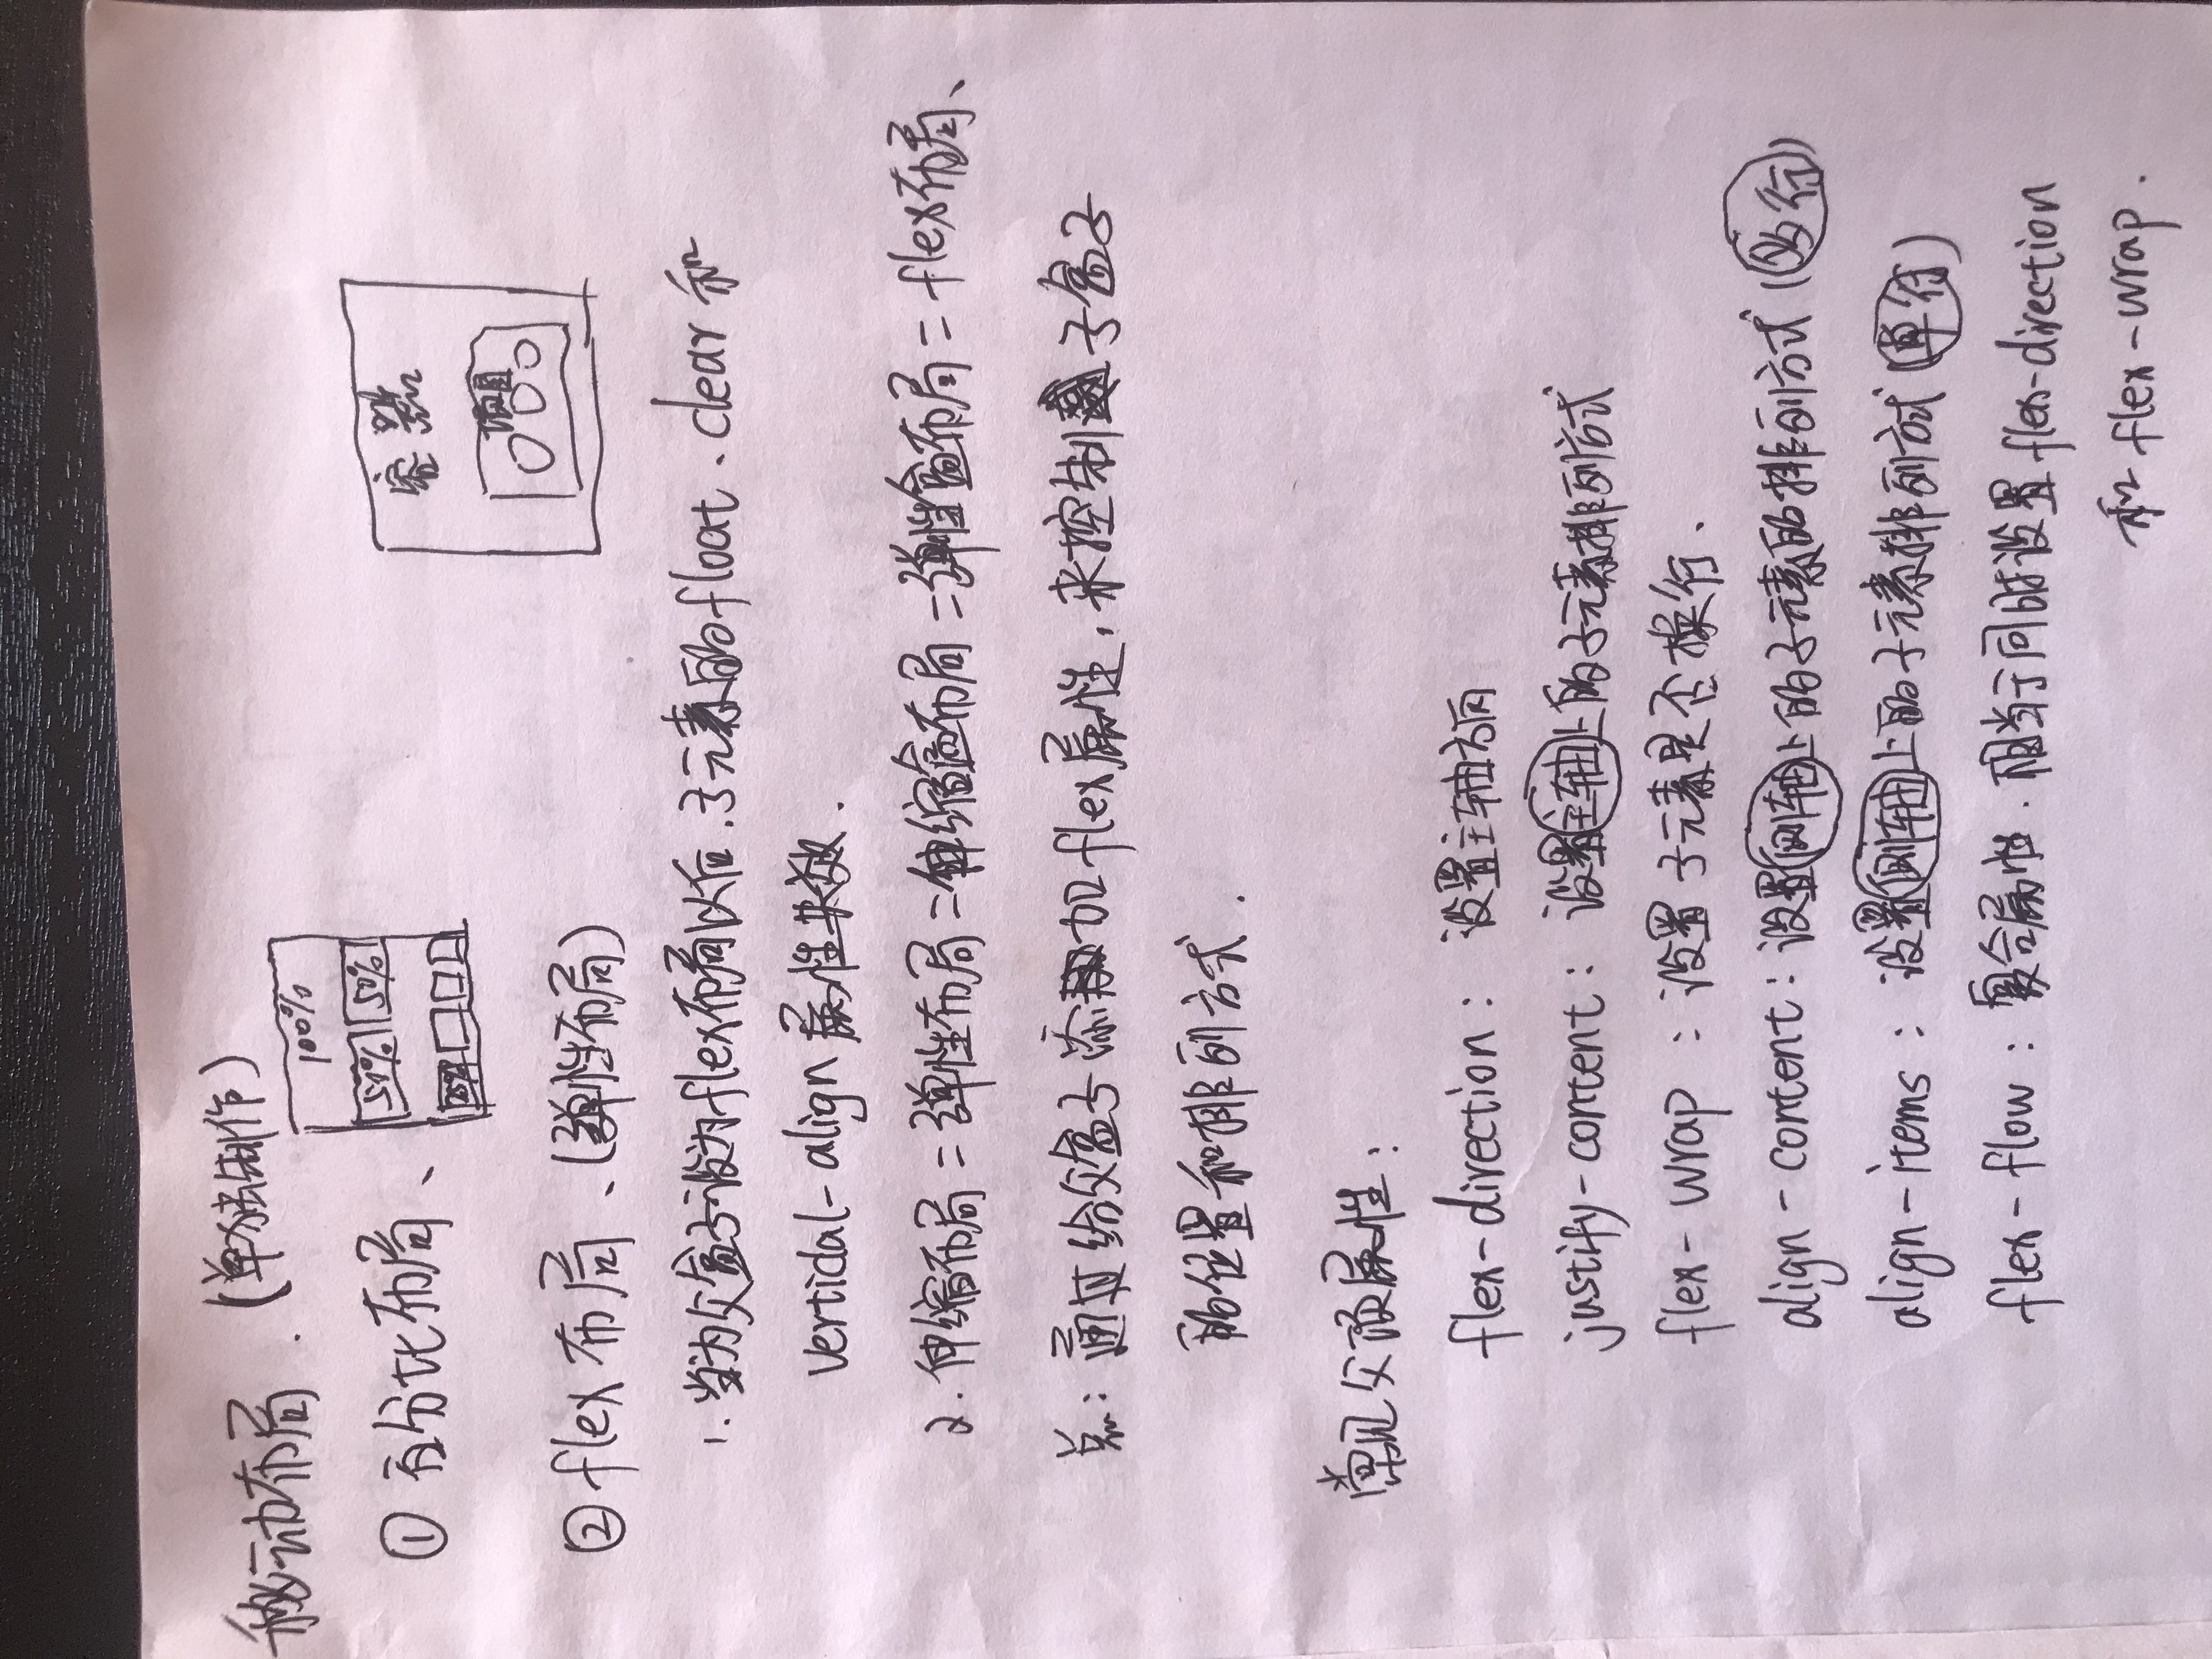 移动布局.(单独制作)
100%
50% 50%
25%
① 百分比布局、
容器
项目
② flex 布局、(弹性布局)
1. 当为父盒子设为flex布局以后,子元素的float、clear 和
vertidal-align 属性失效.
2. 伸缩布局 = 弹性布局 = 伸缩盒布局 = 弹性盒布局 = flex布局、
总: 通过给父盒子添加flex属性,来控制子盒子
的位置和排列方式.
常见父项属性:
flex-direction: 设置主轴方向
justify-content: 设置主轴上的子元素排列方式
flex-wrap : 设置子元素是否换行.
align-content: 设置侧轴上的子元素的排列方式(多行)
align-items : 设置侧轴上的子元素排列方式(单行)
flex-flow : 复合属性. 相当于同时设置 flex-direction
和 flex-wrap.